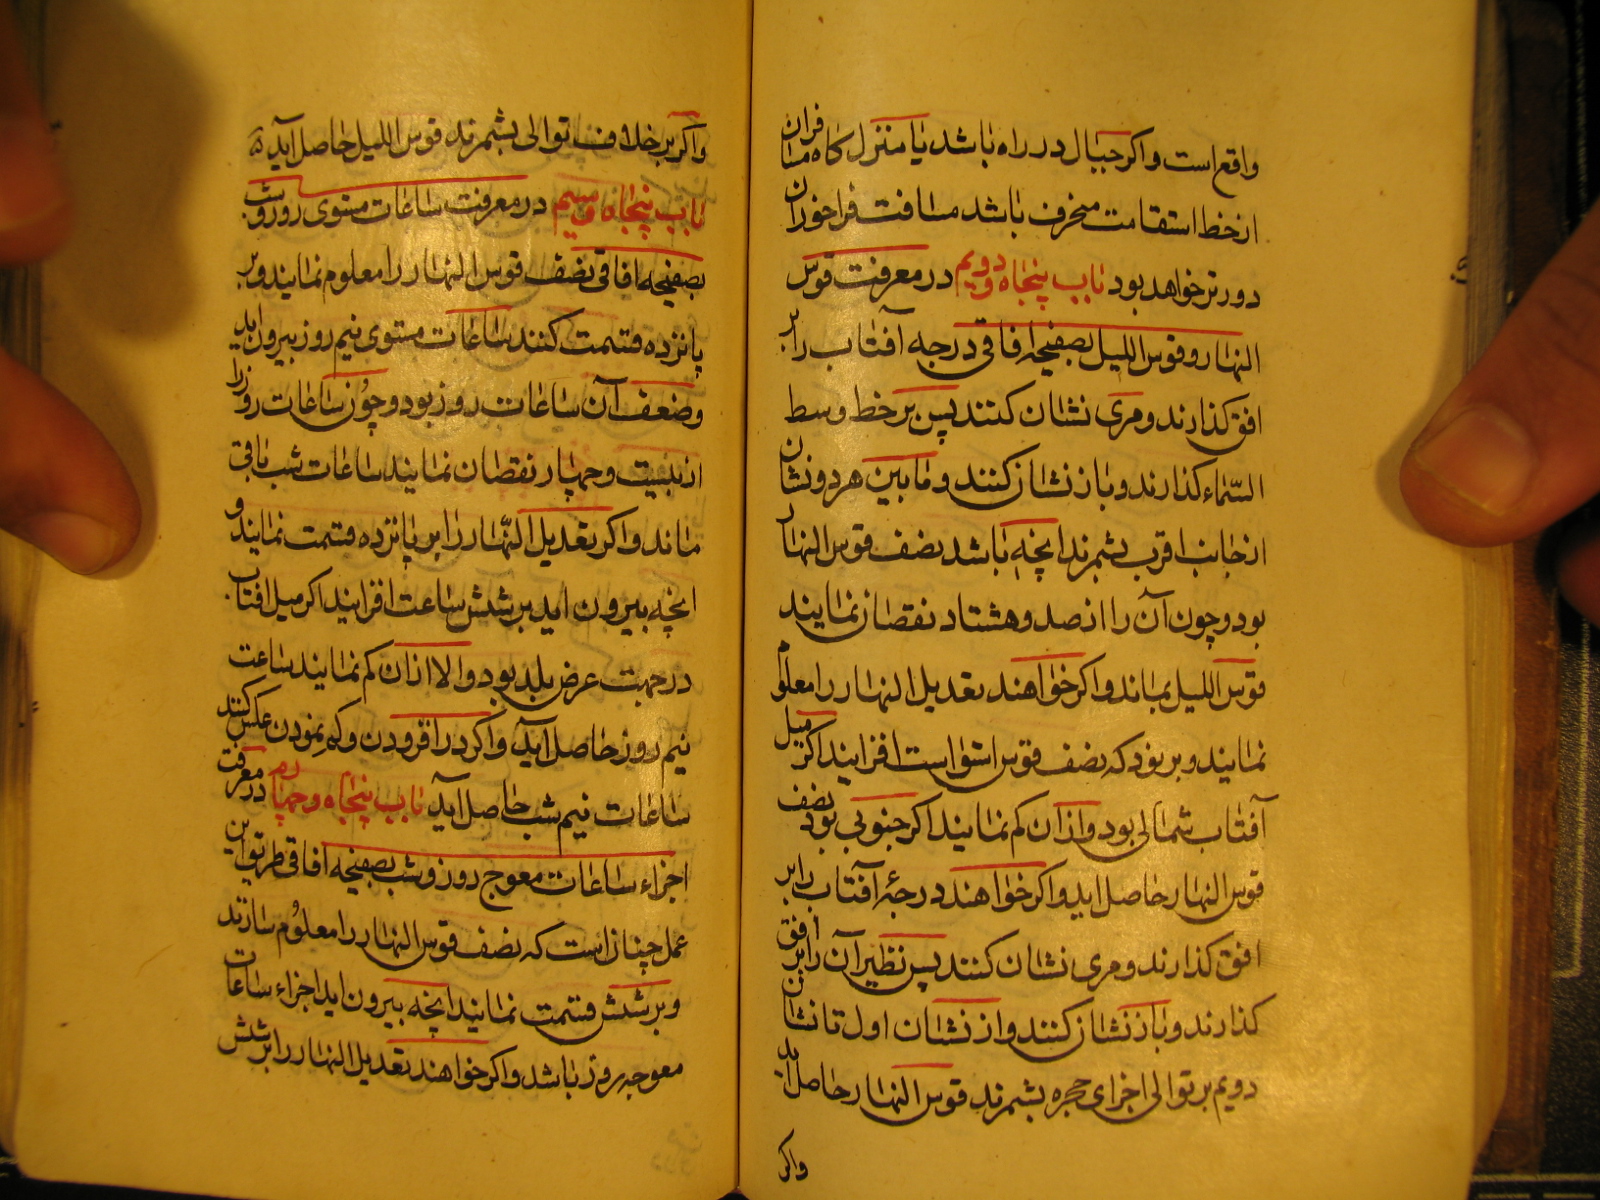 واقع است و اکر جبال در راه باشد یا منزل کاه مسافران
از خط استقامت منحرف باشد مسافت فراخور آن
دورتر خواهد بود باب پنجاه و دویم در معرفت قوس
النهار و قوس اللیل بصفیحه افاقی درجه آفتاب را بر
افق کذارند و مری نشان کنند پس بر خط وسط
السّماء کذارند و باز نشان کنند و مابین هر دو نشان
از جانب اقرب بشمرند انچه باشد نصف قوس النهار
بود و چون آن را از صد و هشتاد نقصان نمایند
قوس اللیل بماند و اکر خواهند تعدیل النهار را معلوم
نمایند و بر نود که نصف قوس استواست افزایند اکر میل
آفتاب شمالی بود و ازان کم نمایند اکر جنوبی بود نصف
قوس النهار حاصل اید و اکر خواهند درجهٔ آفتاب را بر
افق کذارند و مری نشان کنند پس نظیر آن را بر افق
کذارند و باز نشان کنند و از نشان اول تا نشان
دویم بر توالی اجزای حجره بشمرند قوس النهار حاصل اید
واکر
واکر بر خلاف توالی بشمرند قوس اللیل حاصل آید
باب پنجاه و سیم در معرفت ساعات مستوی روز و شب
بصفیحه افاقی نصف قوس النهار را معلوم نمایند و بر
پانزده قسمت کنند ساعات مستوی نیم روز بیرون اید
و ضعف آن ساعات روز بود و چون ساعات روز را
از بیست و چهار نقصان نمایند ساعات شب باقی
ماند و اکر تعدیل النّهار را بر پانزده قسمت نمایند و
انچه بیرون اید بر شش ساعت افزایند اکر میل افتاب
در جهت عرض بلد بود و الا ازان کم نمایند ساعت
نیم روز حاصل آید و اکر در افزودن و کم نمودن عکس کنند
ساعات نیم شب حاصل اید باب پنجاه و چهارم در معرفت
اجزاء ساعات معوج روز و شب بصفیحه افاقی طریق این
عمل چنان است که نصف قوس النهار را معلوم سازند
و بر شش قسمت نمایند انچه بیرون اید اجزاء ساعات
معوجه روز باشد و اکر خواهند تعدیل النهار را بر شش